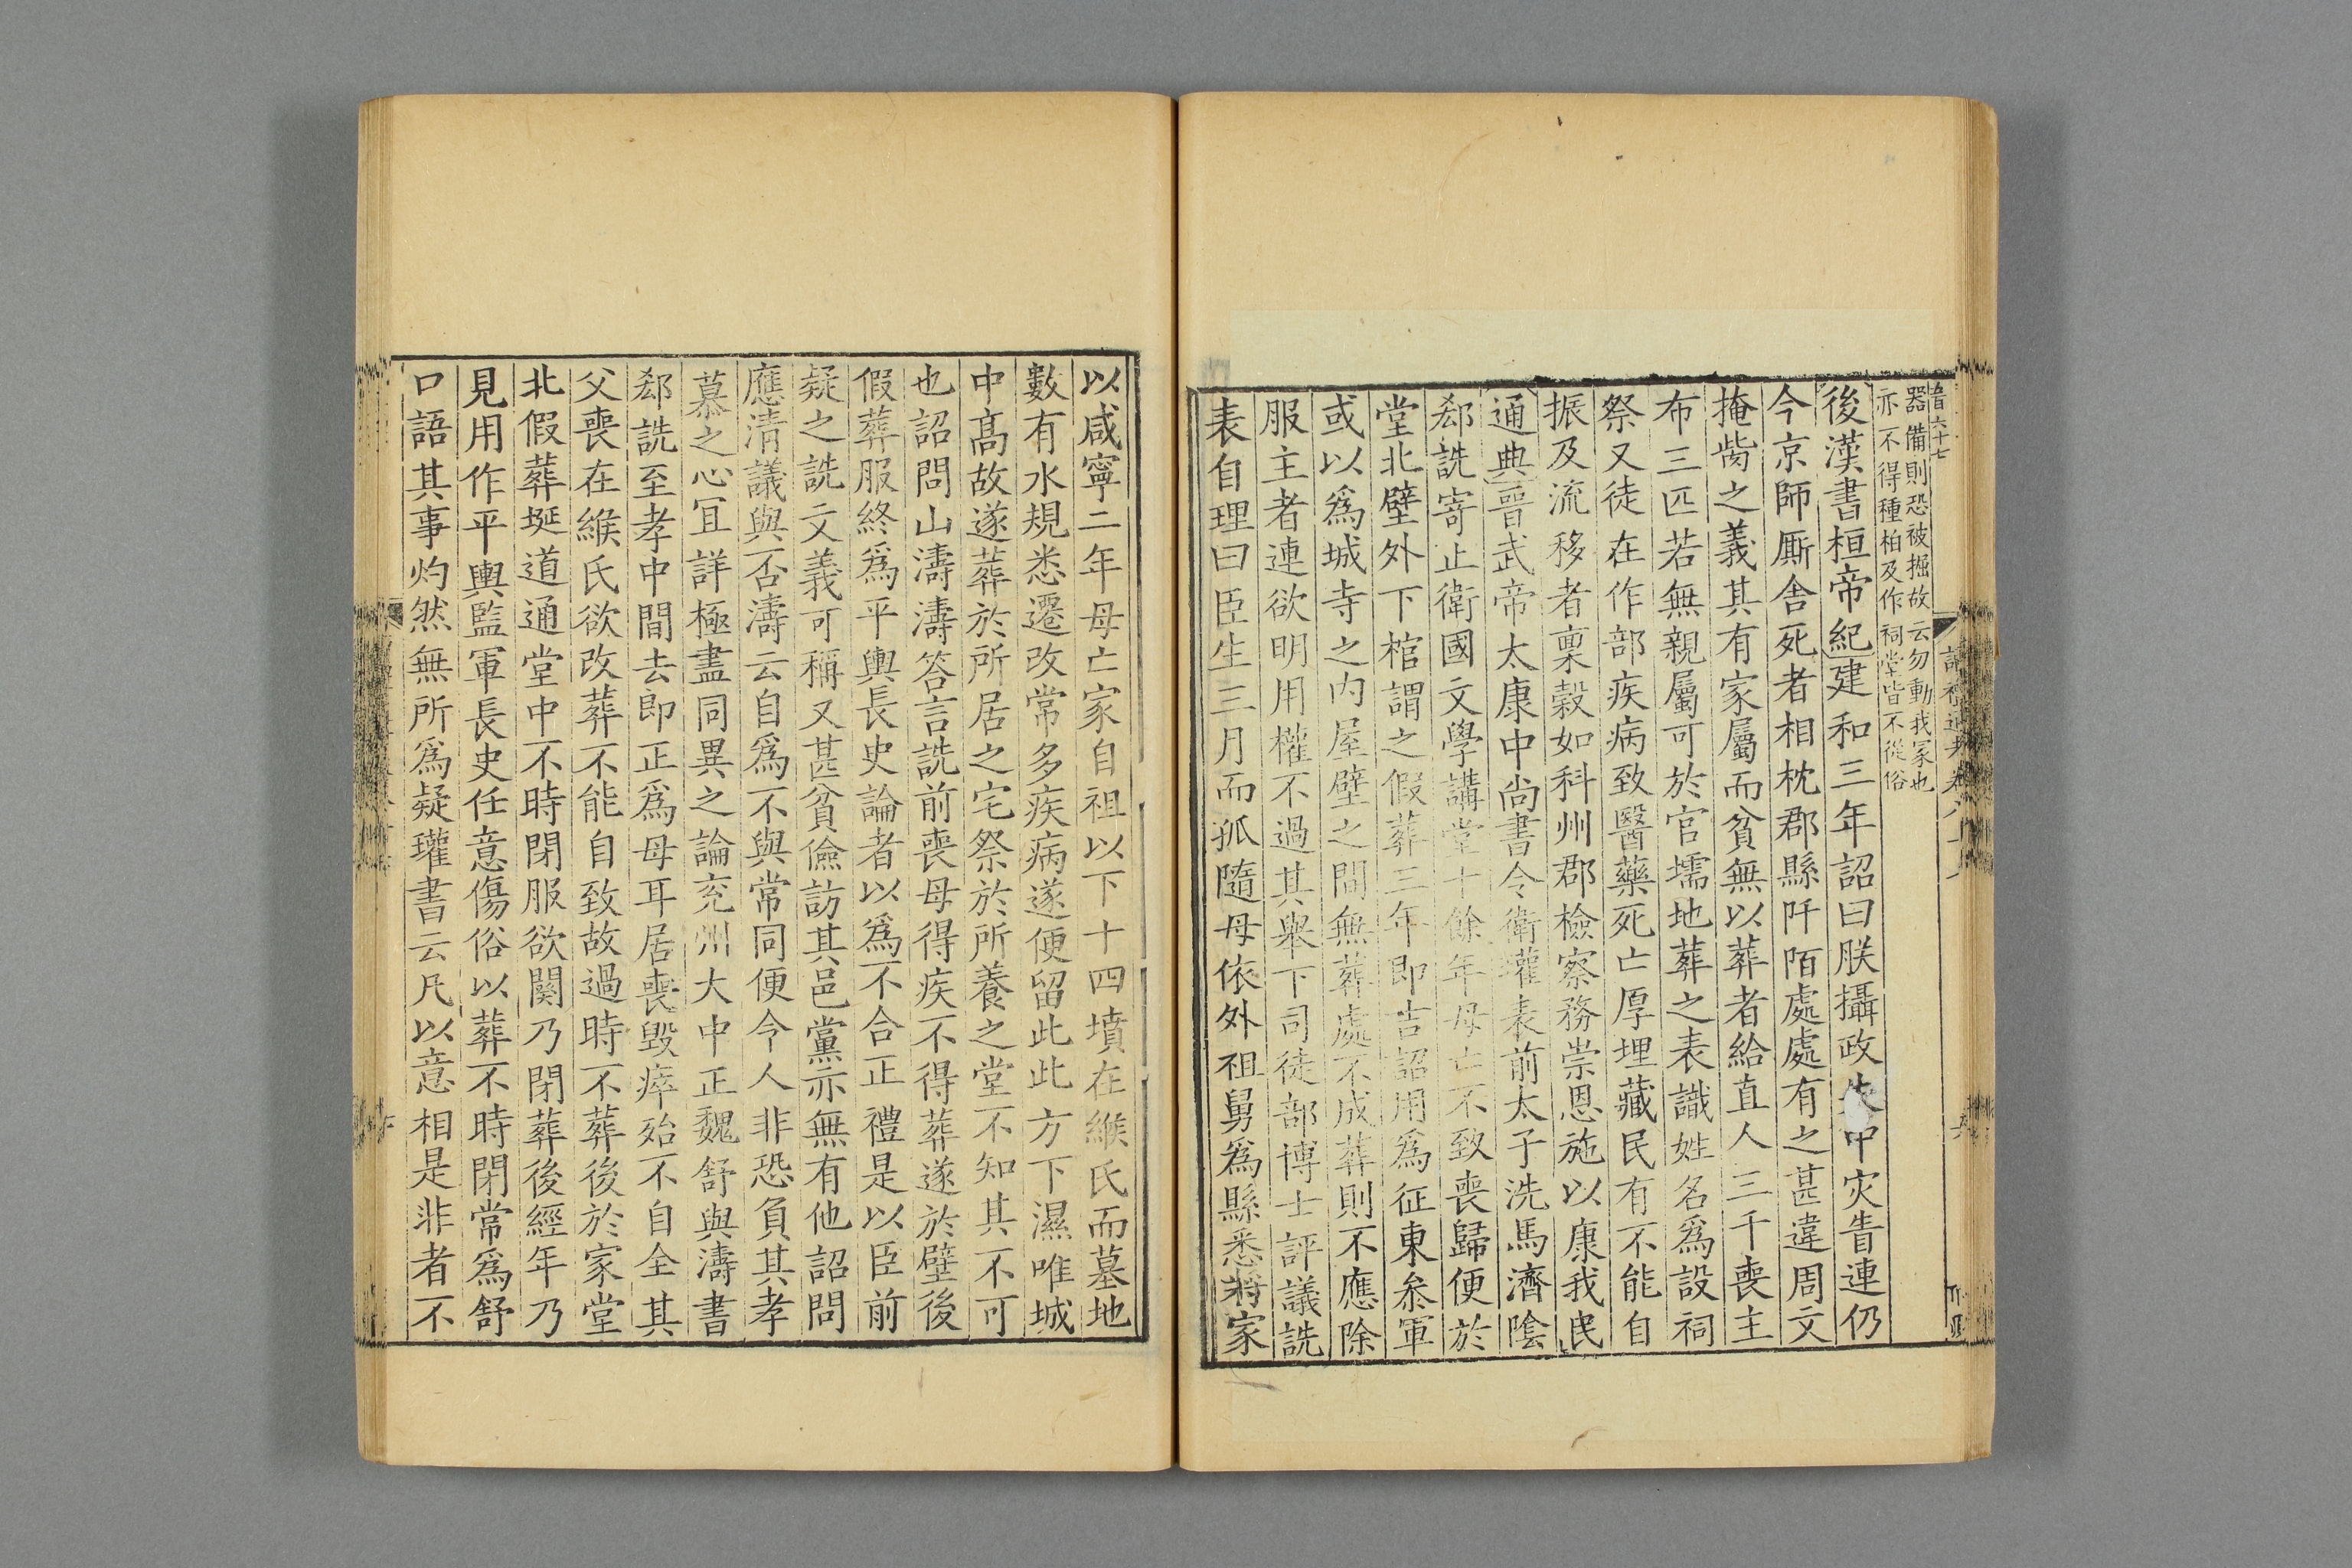 音六十七
器備則恐被掘故云勿動我冡也
亦不得種柏及作祠堂皆不從俗
後漢書桓帝紀建和三年詔曰朕攝政失中灾眚連仍
今京師厮舍死者相枕郡縣阡陌處處有之甚違周文
掩胔之義其有家屬而貧無以葬者給直人三千喪主
布三匹若無親屬可於官壖地葬之表識姓名爲設祠
祭又徒在作部疾病致醫藥死亡厚埋藏民有不能自
振及流移者稟榖如科州郡檢察務崇恩施以康我民
通典晉武帝太康中尚書令衛瓘表前太子洗馬濟陰
郄詵寄止衛國文學講堂十餘年母亡不致喪歸便於
堂北壁外下棺謂之假葬三年即吉詔用爲征東叅軍
或以爲城寺之内屋壁之間無葬處不成葬則不應除
服主者連欲明用權不過其舉下司徒部博士評議詵
表自理曰臣生三月而孤隨母依外祖舅爲縣悉將家
以咸寧二年母亡家自祖以下十四墳在緱氏而墓地
數有水規悉遷改常多疾病遂便留此此方下濕唯城
中髙故遂葬於所居之宅祭於所養之堂不知其不可
也詔問山濤濤答言詵前喪母得疾不得葬遂於壁後
假葬服終爲平輿長史論者以爲不合正禮是以臣前
疑之詵文義可稱又甚貧儉訪其邑黨亦無有他詔問
應清議與否濤云自爲不與常同便令人非恐負其孝
慕之心冝詳極盡同異之論兖州大中正魏舒與濤書
郄詵至孝中間去即正爲母耳居喪毁瘁殆不自全其
父喪在緱氏欲改葬不能自致故過時不葬後於家堂
北假葬埏道通堂中不時閉服欲闋乃閉葬後經年乃
見用作平輿監軍長史任意傷俗以葬不時閉常爲舒
口語其事灼然無所爲疑瓘書云凡以意相是非者不